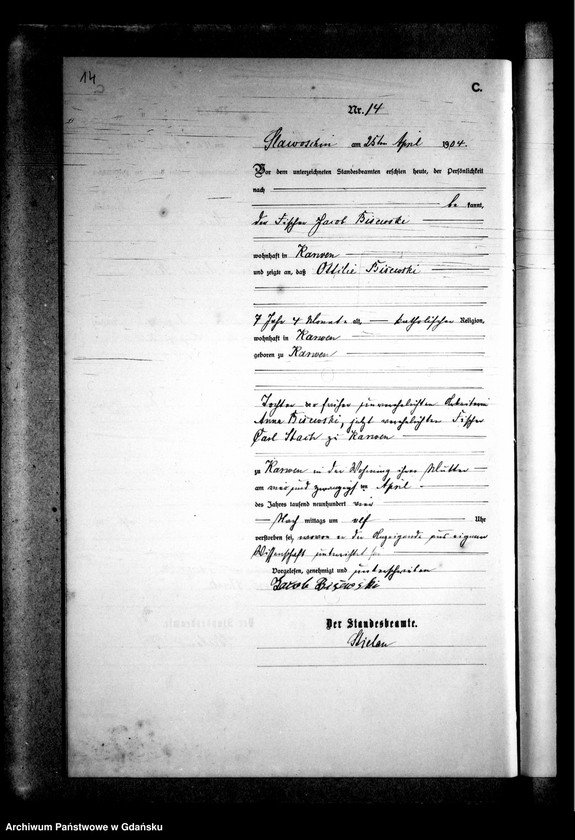 14
C.
Nr. 14
Slawoschin am 25ten April 1904.
Vor dem unterzeichneten Standesbeamten erschien heute, der Persönlichkeit
nach
be kannt,
der Fischer Jacob Bisewski
wohnhaft in Karwen
und zeigte an, daß Ottilie Bisewski
7 Jahr 4 Monate alt, katholischer Religion,
wohnhaft in Karwen
geboren zu Karwen
Tochter der früher unverehelichten Arbeiterin
Anna Bisewski, jetzt verehelichten Fischer
Carl Stach zu Karwen
zu Karwen in der Wohnung ihrer Mutter
am vier und zwanzigsten April
des Jahres tausend neunhundert vier
Nach mittags um elf Uhr
verstorben sei, wovon er der Anzeigende aus eigener
Wissenschaft unterrichtet sei
Vorgelesen, genehmigt und unterschrieben
Jacob Bisewski
Der Standesbeamte.
Archiwum Państwowe w Gdańsku